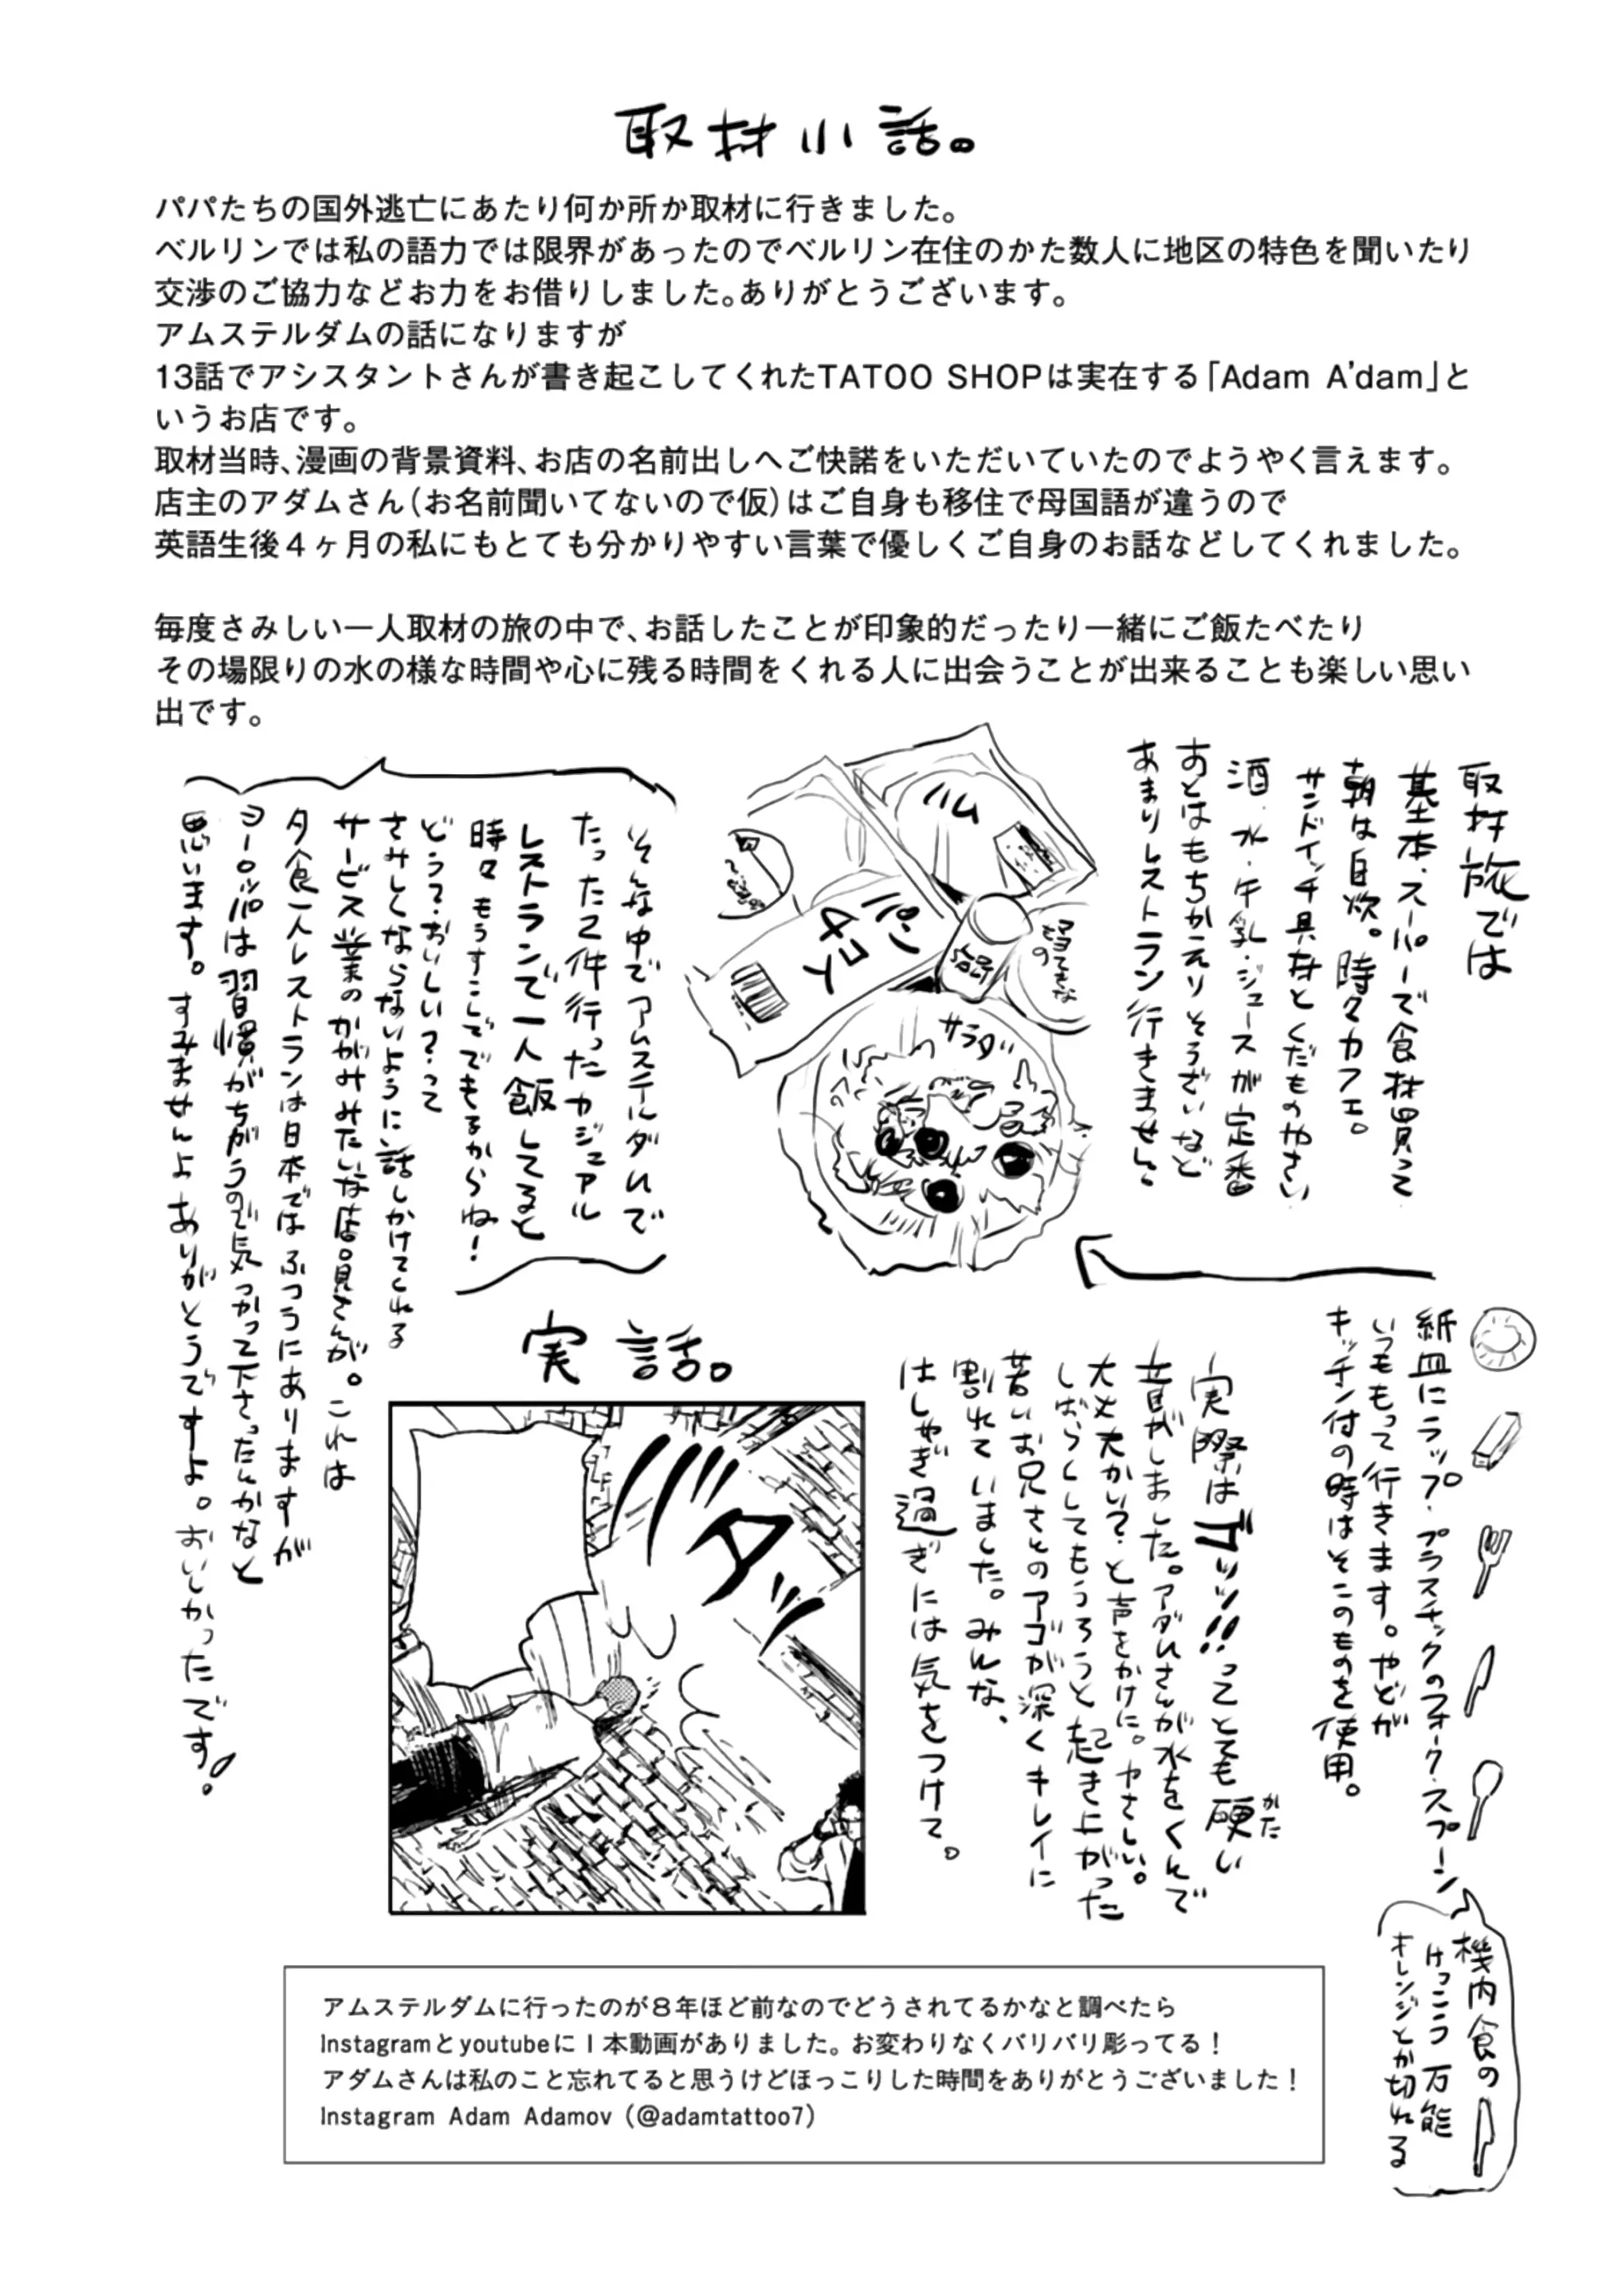 取材小話。
パパたちの国外逃亡にあたり何か所か取材に行きました。
ベルリンでは私の語力では限界があったのでベルリン在住のかた数人に地区の特色を聞いたり
交渉のご協力などお力をお借りしました。ありがとうございます。
アムステルダムの話になりますが
13話でアシスタントさんが書き起こしてくれたTATOO SHOPは実在する「Adam A'dam」と
いうお店です。
取材当時、漫画の背景資料、お店の名前出しへご快諾をいただいていたのでようやく言えます。
店主のアダムさん（お名前聞いてないので仮）はご自身も移住で母国語が違うので
英語生後４ヶ月の私にもとても分かりやすい言葉で優しくご自身のお話などしてくれました。
毎度さみしい一人取材の旅の中で、お話したことが印象的だったり一緒にご飯たべたり
その場限りの水の様な時間や心に残る時間をくれる人に出会うことが出来ることも楽しい思い
出です。
取材旅では
基本、スーパーで食材買って
朝は自炊。時々カフェ。
サンドイッチ具材とくだものやさい
酒・水・牛乳・ジュースが定番
あとはもちかえりそうざいなど
あまりレストラン行きません。
ハム
パン
4コ入
サラダ
そんな中でアムステルダムで
たった2件行ったカジュアル
レストランで一人飯してると
時々もうすこしででもるからね！
どうて・おいしい？って
さみしくならないように話しかけてくれる
サービス業のかがみみたいな店員さんが。これは
夕食一人レストランは日本ではふつうにありますが
ヨーロッパは習慣がちがうので気つかって下さったんかなと
思います。すみませんよありがとうですよ。おいしかったです！
紙皿にラップ・プラスチックのフォーク・スプーン
いつももって行きます。やどが
キッチン付の時はそこのものを使用。
機内食の
けっこう万能
オレンジとか切れる
実際はゴッッ!!ってとても硬い
かた
音がしました。アダムさんが水をくんで
大丈夫かい？と声をかけに。やさしい。
しばらくしてもうろうと起き上がった
若いお兄さんのアゴが深くキレイに
割れていました。みんな、
はしゃぎ過ぎには気をつけて。
実話。
バタッ
アムステルダムに行ったのが８年ほど前なのでどうされてるかなと調べたら
Instagramとyoutubeに１本動画がありました。お変わりなくバリバリ彫ってる！
アダムさんは私のこと忘れてると思うけどほっこりした時間をありがとうございました！
Instagram Adam Adamov（@adamtattoo7）